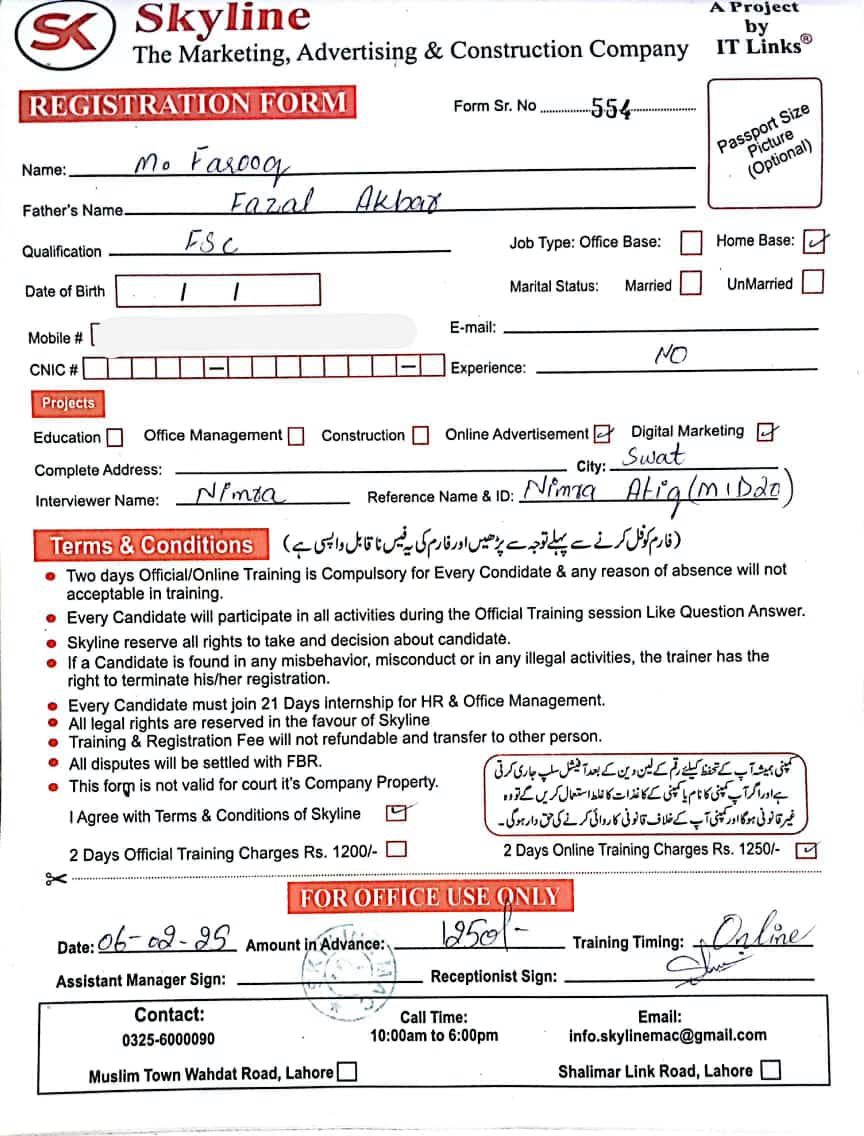 SK
Skyline
The Marketing, Advertising & Construction Company
A Project
by
IT Links®
REGISTRATION FORM
Form Sr. No 554
Passport Size
Picture
(Optional)
Name: Mo Farooq
Father's Name Fazal Akbar
Qualification FSc
Job Type: Office Base: Home Base:
Date of Birth / /
Marital Status: Married UnMarried
Mobile #
E-mail:
CNIC # – –
Experience: NO
Projects
Education Office Management Construction Online Advertisement Digital Marketing
Complete Address: City: Swat
Interviewer Name: Nimra Reference Name & ID: Nimra Atiq (M1D20)
Terms & Conditions (فارم کو فل کرنے سے پہلے توجہ سے پڑھیں اور فارم کی یہ فیس ناقابل واپسی ہے)
Two days Official/Online Training is Compulsory for Every Condidate & any reason of absence will not
acceptable in training.
Every Candidate will participate in all activities during the Official Training session Like Question Answer.
Skyline reserve all rights to take and decision about candidate.
If a Candidate is found in any misbehavior, misconduct or in any illegal activities, the trainer has the
right to terminate his/her registration.
Every Candidate must join 21 Days Internship for HR & Office Management.
All legal rights are reserved in the favour of Skyline
Training & Registration Fee will not refundable and transfer to other person.
All disputes will be settled with FBR.
This form is not valid for court it's Company Property.
کمپنی ہمیشہ آپ کے تحفظ کیلئے رقم کے لین دین کے بعد آفیشل سلپ جاری کرتی
ہے اور اگر آپ کمپنی کا نام یا کمپنی کے کاغذات کا غلط استعمال کریں گے تو وہ
غیر قانونی ہوگا اور کمپنی آپ کے خلاف قانونی کاروائی کرنے کی حق دار ہوگی۔
I Agree with Terms & Conditions of Skyline
2 Days Official Training Charges Rs. 1200/-
2 Days Online Training Charges Rs. 1250/-
FOR OFFICE USE ONLY
Date: 06-02-25 Amount in Advance: 1250/- Training Timing: Online
Assistant Manager Sign: Receptionist Sign:
Contact:
0325-6000090
Call Time:
10:00am to 6:00pm
Email:
info.skylinemac@gmail.com
Muslim Town Wahdat Road, Lahore
Shalimar Link Road, Lahore